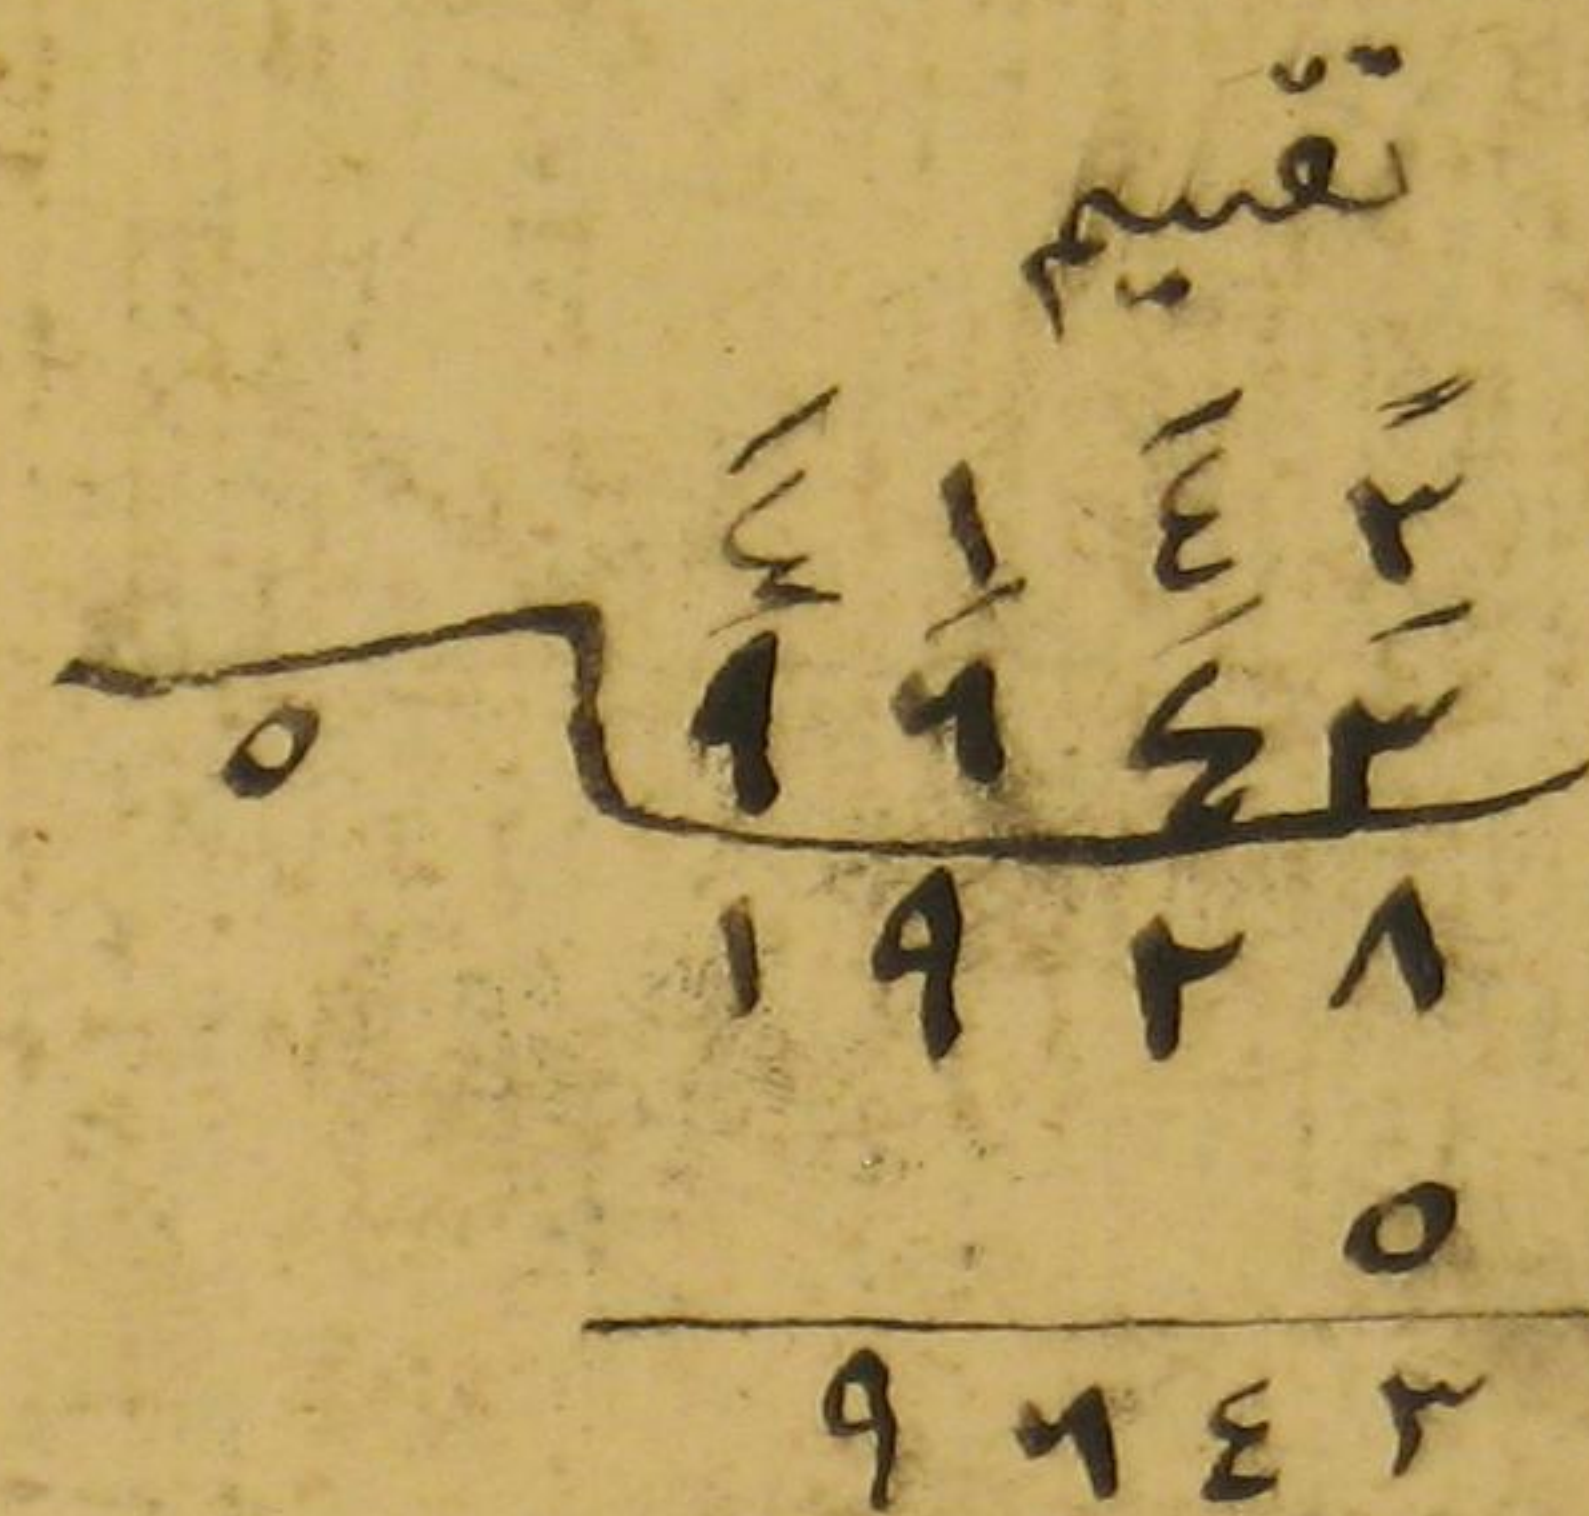 تقسيم
٤ ١ ٤ ٣
٥ ٩ ٦ ٤ ٣
١ ٩ ٢ ٨
٥
٩ ٦ ٤ ٣